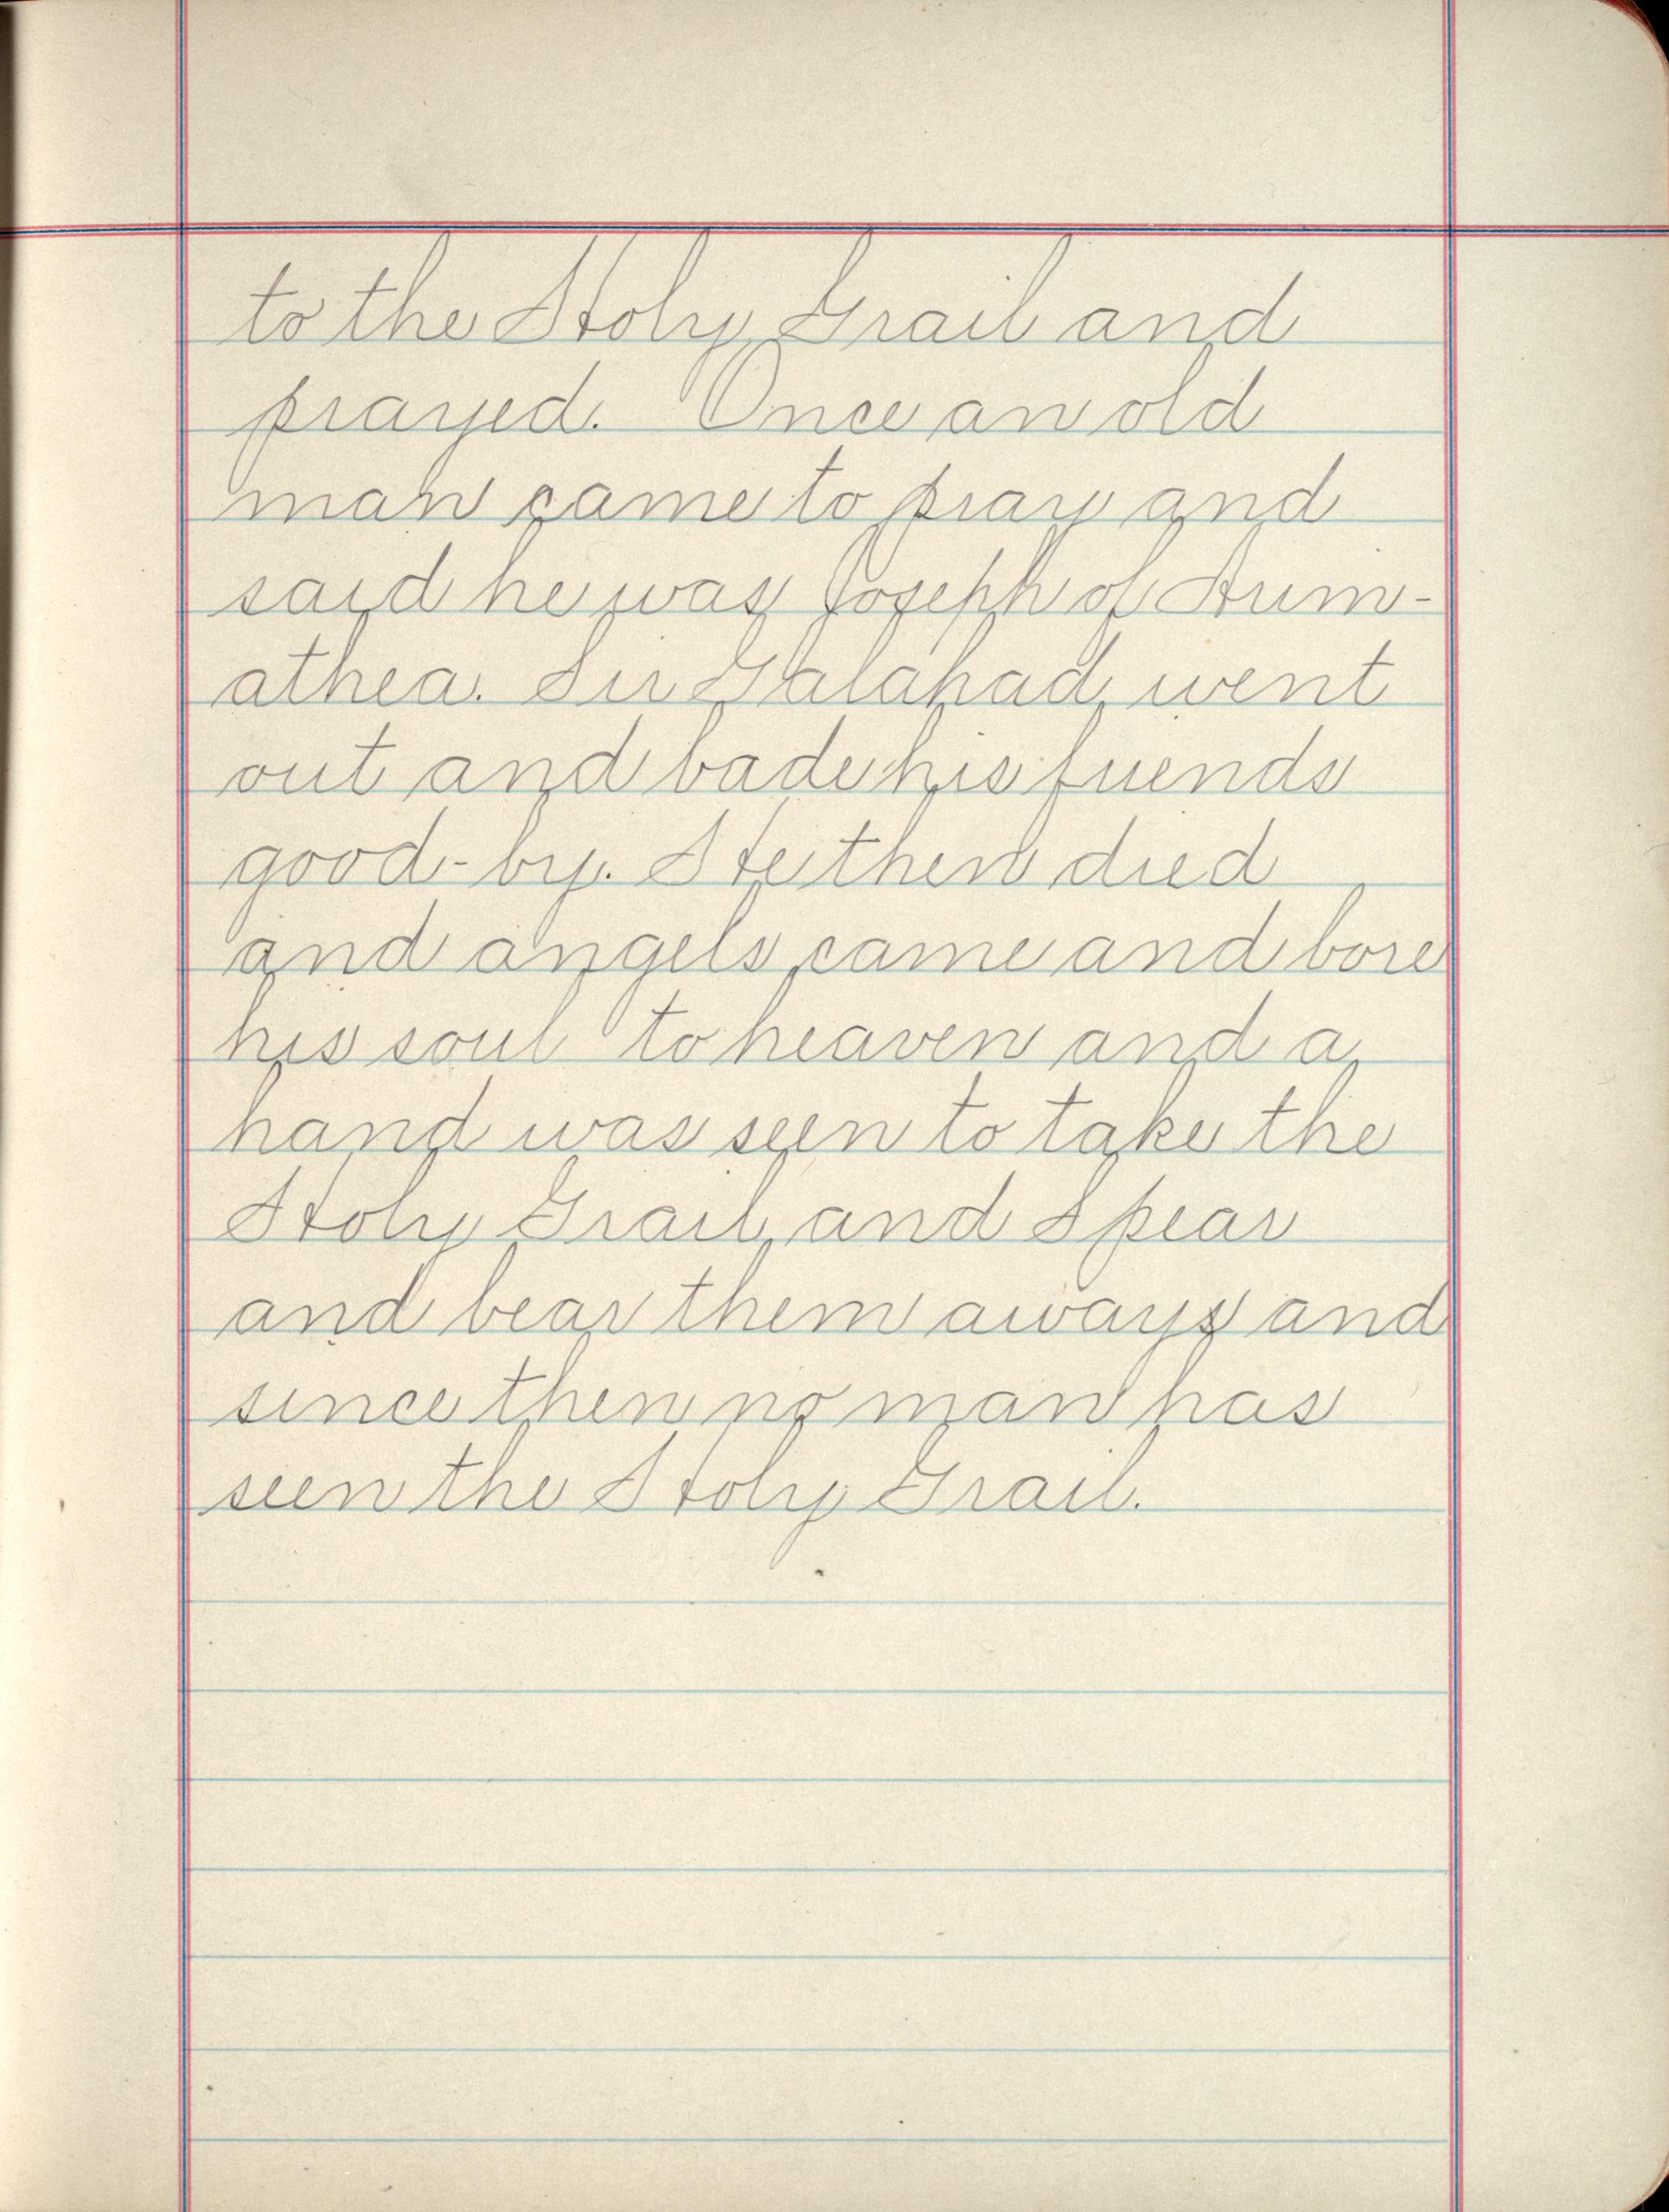 to the Holy Grail and
prayed. Once an old
man came to pray and
said he was Joseph of Arim-
athea. Sir Galahad, went
out and bade his friends
good-by. He then died
and angels came and bore
his soul to heaven and a
hand was seen to take the
Holy Grail and Spear
and bear them aways and
since then no man has
seen the Holy Grail.